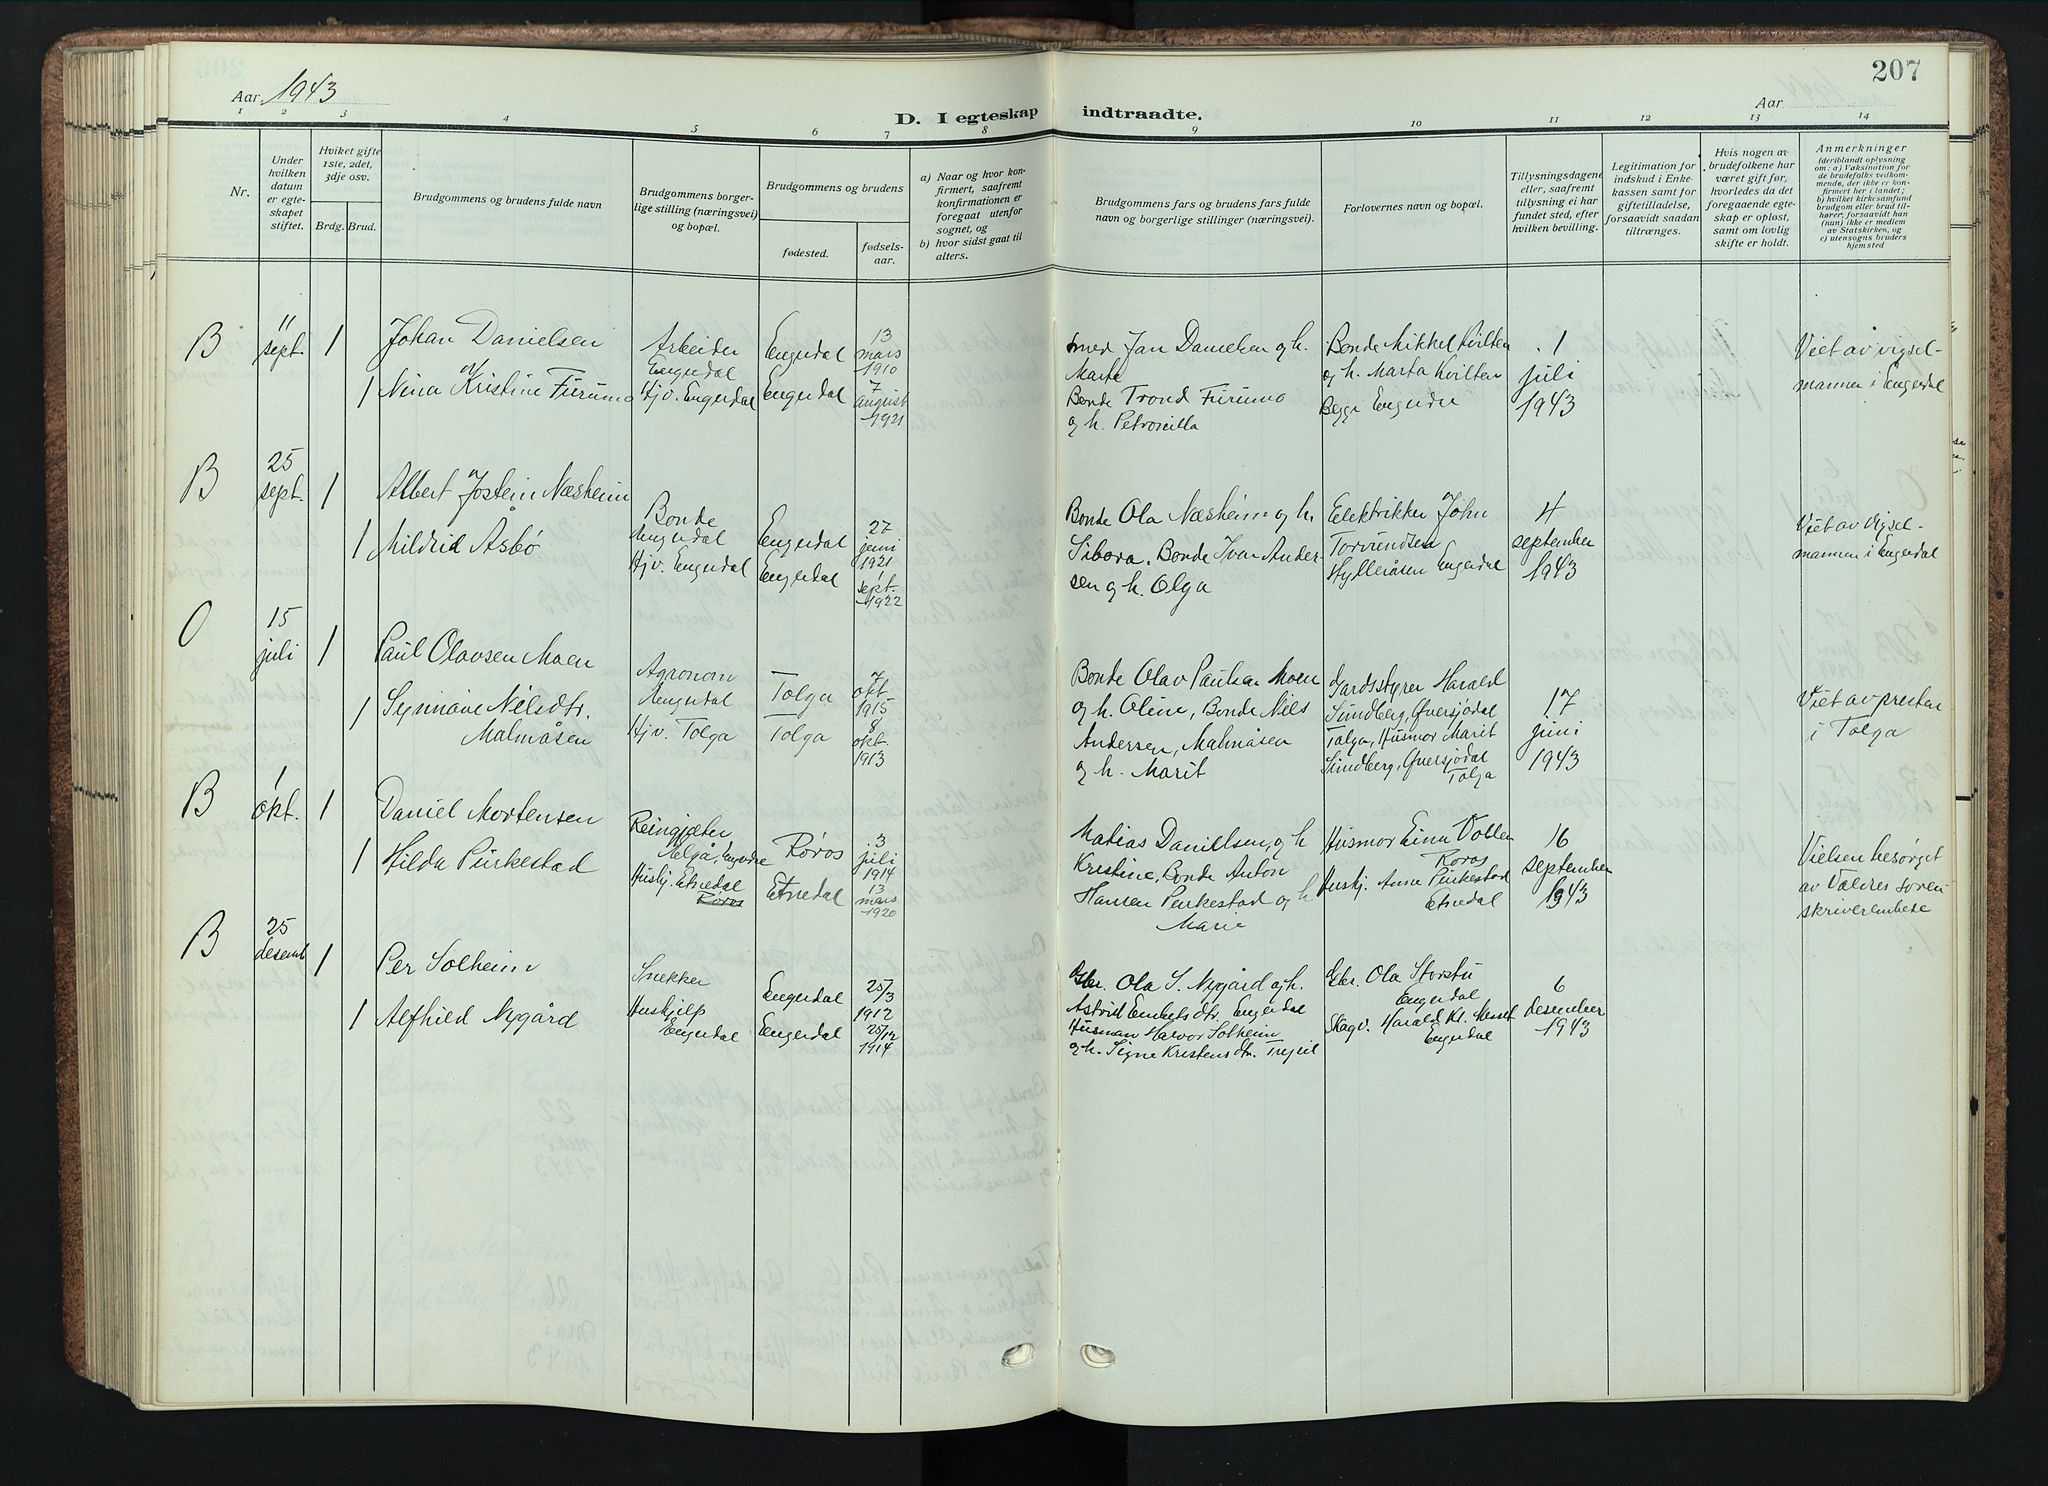 207
Aar 1943
Aar
D. I egteskap indtraadte.
1 2 3 4 5 6 7 8 9 10 11 12 13 14
Nr.
Under hvilken datum er egteskapet stiftet.
Hviket gifte 1ste, 2det, 3dje osv.
Brdg. Brud.
Brudgommens og brudens fulde navn
Brudgommens borgerlige stilling (næringsvei) og bopæl.
Brudgommens og brudens
fødested.
fødselsaar.
a) Naar og hvor konfirmert, saafremt konfirmationen er foregaat utenfor sognet, og
b) hvor sidst gaat til alters.
Brudgommens fars og brudens fars fulde navn og borgerlige stillinger (næringsvei).
Forlovernes navn og bopæl.
Tillysningsdagene eller, saafremt tillysning ei har fundet sted, efter hvilken bevilling.
Legitimation for indskud i Enkekassen samt for giftetilladelse, forsaavidt saadan tiltrænges.
Hvis nogen av brudefolkene har været gift før, hvorledes da det foregaaende egteskap er opløst, samt om lovlig skifte er holdt.
Anmerkninger (deriblandt oplysning om: a) Vaksination for de brudefolks vedkommende, der ikke er konfirmert her i landet; b) hvilket kirkesamfund brudgom eller brud tilhører, forsaavidt han (hun) ikke er medlem av Statskirken, og c) utensogns bruders hjemsted
B 11 sept. 1 Johan Danielsen
Arbeider Engerdal
Engerdal
13 mars 1910
Smed Jan Danielsen og h. Marte
Bonde Mikkel Kvilten og h. Marta Kvilten
Begge Engerdal
1 juli 1943
Viet av vigselmannen i Engerdal
1 Nina Kristine Furumo
Hjv. Engerdal
Engerdal
7 august 1921
Bonde Trond Furumo og h.
B 25 sept. 1 Albert Jostein Næsheim
Bonde Engerdal
Engerdal
27 juni 1921
Bonde Ola Næsheim og h.
Elektrikker John
4 september 1943
Viet av vigselmannen i Engerdal
1 Mildrid Åsbø
Hjv. Engerdal
Engerdal
1 sept. 1922
Bonde Ivar Andersen og h. Olga
Hylleråsen Engerdal
O 15 juli 1 Paul Olavsen Moen
Agronom Engerdal
Tolga
7 okt 1915
Bonde Olav Paulsen Moen og h. Oline, Bonde Nils Andersen, Malmåsen og h. Marit
Gardsstyrer Harald Sundberg, Øversjødal Tolga, Husmor Marit Sundberg, Øversjødal Tolga
17 juni 1943
Viet av presten i Tolga
1 Synnøve Nilsdtr. Malmåsen
Hjv. Tolga
Tolga
8 okt 1913
B 1 okt. 1 Daniel Mortensen
Reingjeter Elgå, Engerdal
Røros
3 juli 1914
Matias Danielsen, og h Kristine, Bonde Anton Hansen Purkestad og h Marie
Husmor Røros
Hushj. Anne Purkestad Etnedal
16 september 1943
Vielsen besørget av Valdres sorenskriverembede
1 Hilda Purkestad
Hushj. Etnedal Røros
Etnedal
13 mars 1920
B 25 desemb 1 Per Solheim
Snekker
Engerdal
25/3 1912
Gbr. Ola S. Nygård og h. Astrid Embretsdtr. Engerdal
Husman Halvor Solheim og h. Signe Kristensdtr. Trysil
Gbr. Ola Storstu Engerdal
Skogv. Harald Kl. Messet Engerdal
6 desember 1943
1 Alfhild Nygård
Hushjelp Engerdal
Engerdal
25/12 1914